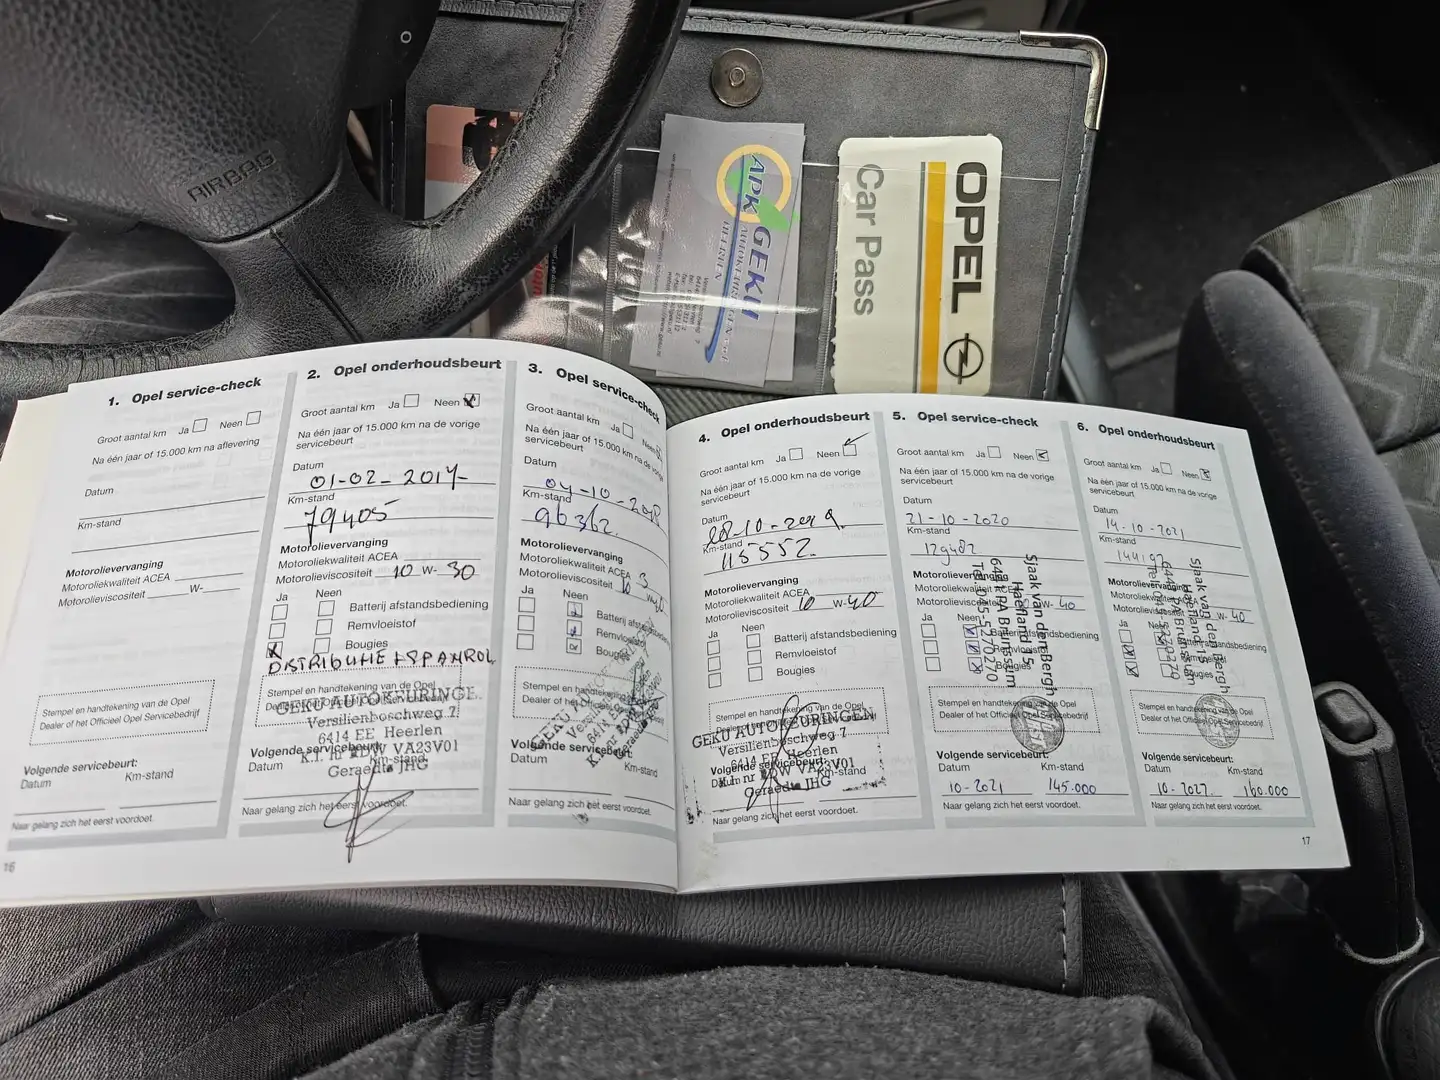 AIRBAG
APK GEKU
AUTOKEURINGEN
HEERLEN
OPEL
Car Pass
1. Opel service-check
Groot aantal km Ja Neen
Na één jaar of 15.000 km na aflevering
Datum
Km-stand
Motorolievervanging
Motoroliekwaliteit ACEA
Motorolieviscositeit W-
Stempel en handtekening van de Opel
Dealer of het Officieel Opel Servicebedrijf
Volgende servicebeurt:
Datum Km-stand
Naar gelang zich het eerst voordoet.
16
2. Opel onderhoudsbeurt
Groot aantal km Ja Neen
Na één jaar of 15.000 km na de vorige
servicebeurt
Datum
01-02-2017
Km-stand
79405
Motorolievervanging
Motoroliekwaliteit ACEA
Motorolieviscositeit 10 W- 30
Ja Neen
Batterij afstandsbediening
Remvloeistof
Bougies
DISTRIBUTIE + SPANROL
Stempel en handtekening van de Opel
GEKU AUTOKEURINGE
Versilienboschweg 7
6414 EE Heerlen
K.I. nr RDW VA23V01
Geraedts JHG
Volgende servicebeurt:
Datum Km-stand
Naar gelang zich het eerst voordoet.
3. Opel service-check
Groot aantal km Ja Neen
Na één jaar of 15.000 km na de vorige
servicebeurt
Datum
04-10-2018
Km-stand
96362
Motorolievervanging
Motoroliekwaliteit ACEA
Motorolieviscositeit 10
Ja Neen
Batterij
Remvloeistof
Bougies
Stempel en handtekening van de
Dealer of het Officieel
Volgende servicebeurt:
Datum Km-stand
Naar gelang zich het eerst voordoet.
4. Opel onderhoudsbeurt
Groot aantal km Ja Neen
Na één jaar of 15.000 km na de vorige
servicebeurt
Datum
28-10-2019
Km-stand
115552
Motorolievervanging
Motoroliekwaliteit ACEA
Motorolieviscositeit 10 W-40
Ja Neen
Batterij afstandsbediening
Remvloeistof
Bougies
Stempel en handtekening van de Opel
GEKU AUTOKEURINGEN
Versilienboschweg 7
6414 EE Heerlen
K.I. nr RDW VA23V01
Geraedts JHG
Datum Km-stand
Naar gelang zich het eerst voordoet.
5. Opel service-check
Groot aantal km Ja Neen
Na één jaar of 15.000 km na de vorige
servicebeurt
Datum
21-10-2020
Km-stand
129482
Motorolievervanging
Motoroliekwaliteit
W- 40
Ja Neen
Batterij afstandsbediening
Remvloeistof
Bougies
Sjaak van den Bergh
Haefland 15
6441 PA Brunssum
Tel. 045-5270270
Stempel en handtekening van de Opel
Dealer of het Officieel Opel Servicebedrijf
Volgende servicebeurt:
Datum Km-stand
10-2021 145.000
Naar gelang zich het eerst voordoet.
6. Opel onderhoudsbeurt
Groot aantal km Ja Neen
Na één jaar of 15.000 km na de vorige
servicebeurt
Datum
14-10-2021
Km-stand
Motorolievervanging
W- 40
Ja
Sjaak van den Bergh
Haefland 15
6441 PA Brunssum
Tel. 045-5270270
Stempel en handtekening van de Opel
Dealer of het Officieel Opel Servicebedrijf
Volgende servicebeurt:
Datum Km-stand
10-2022 160.000
Naar gelang zich het eerst voordoet.
17